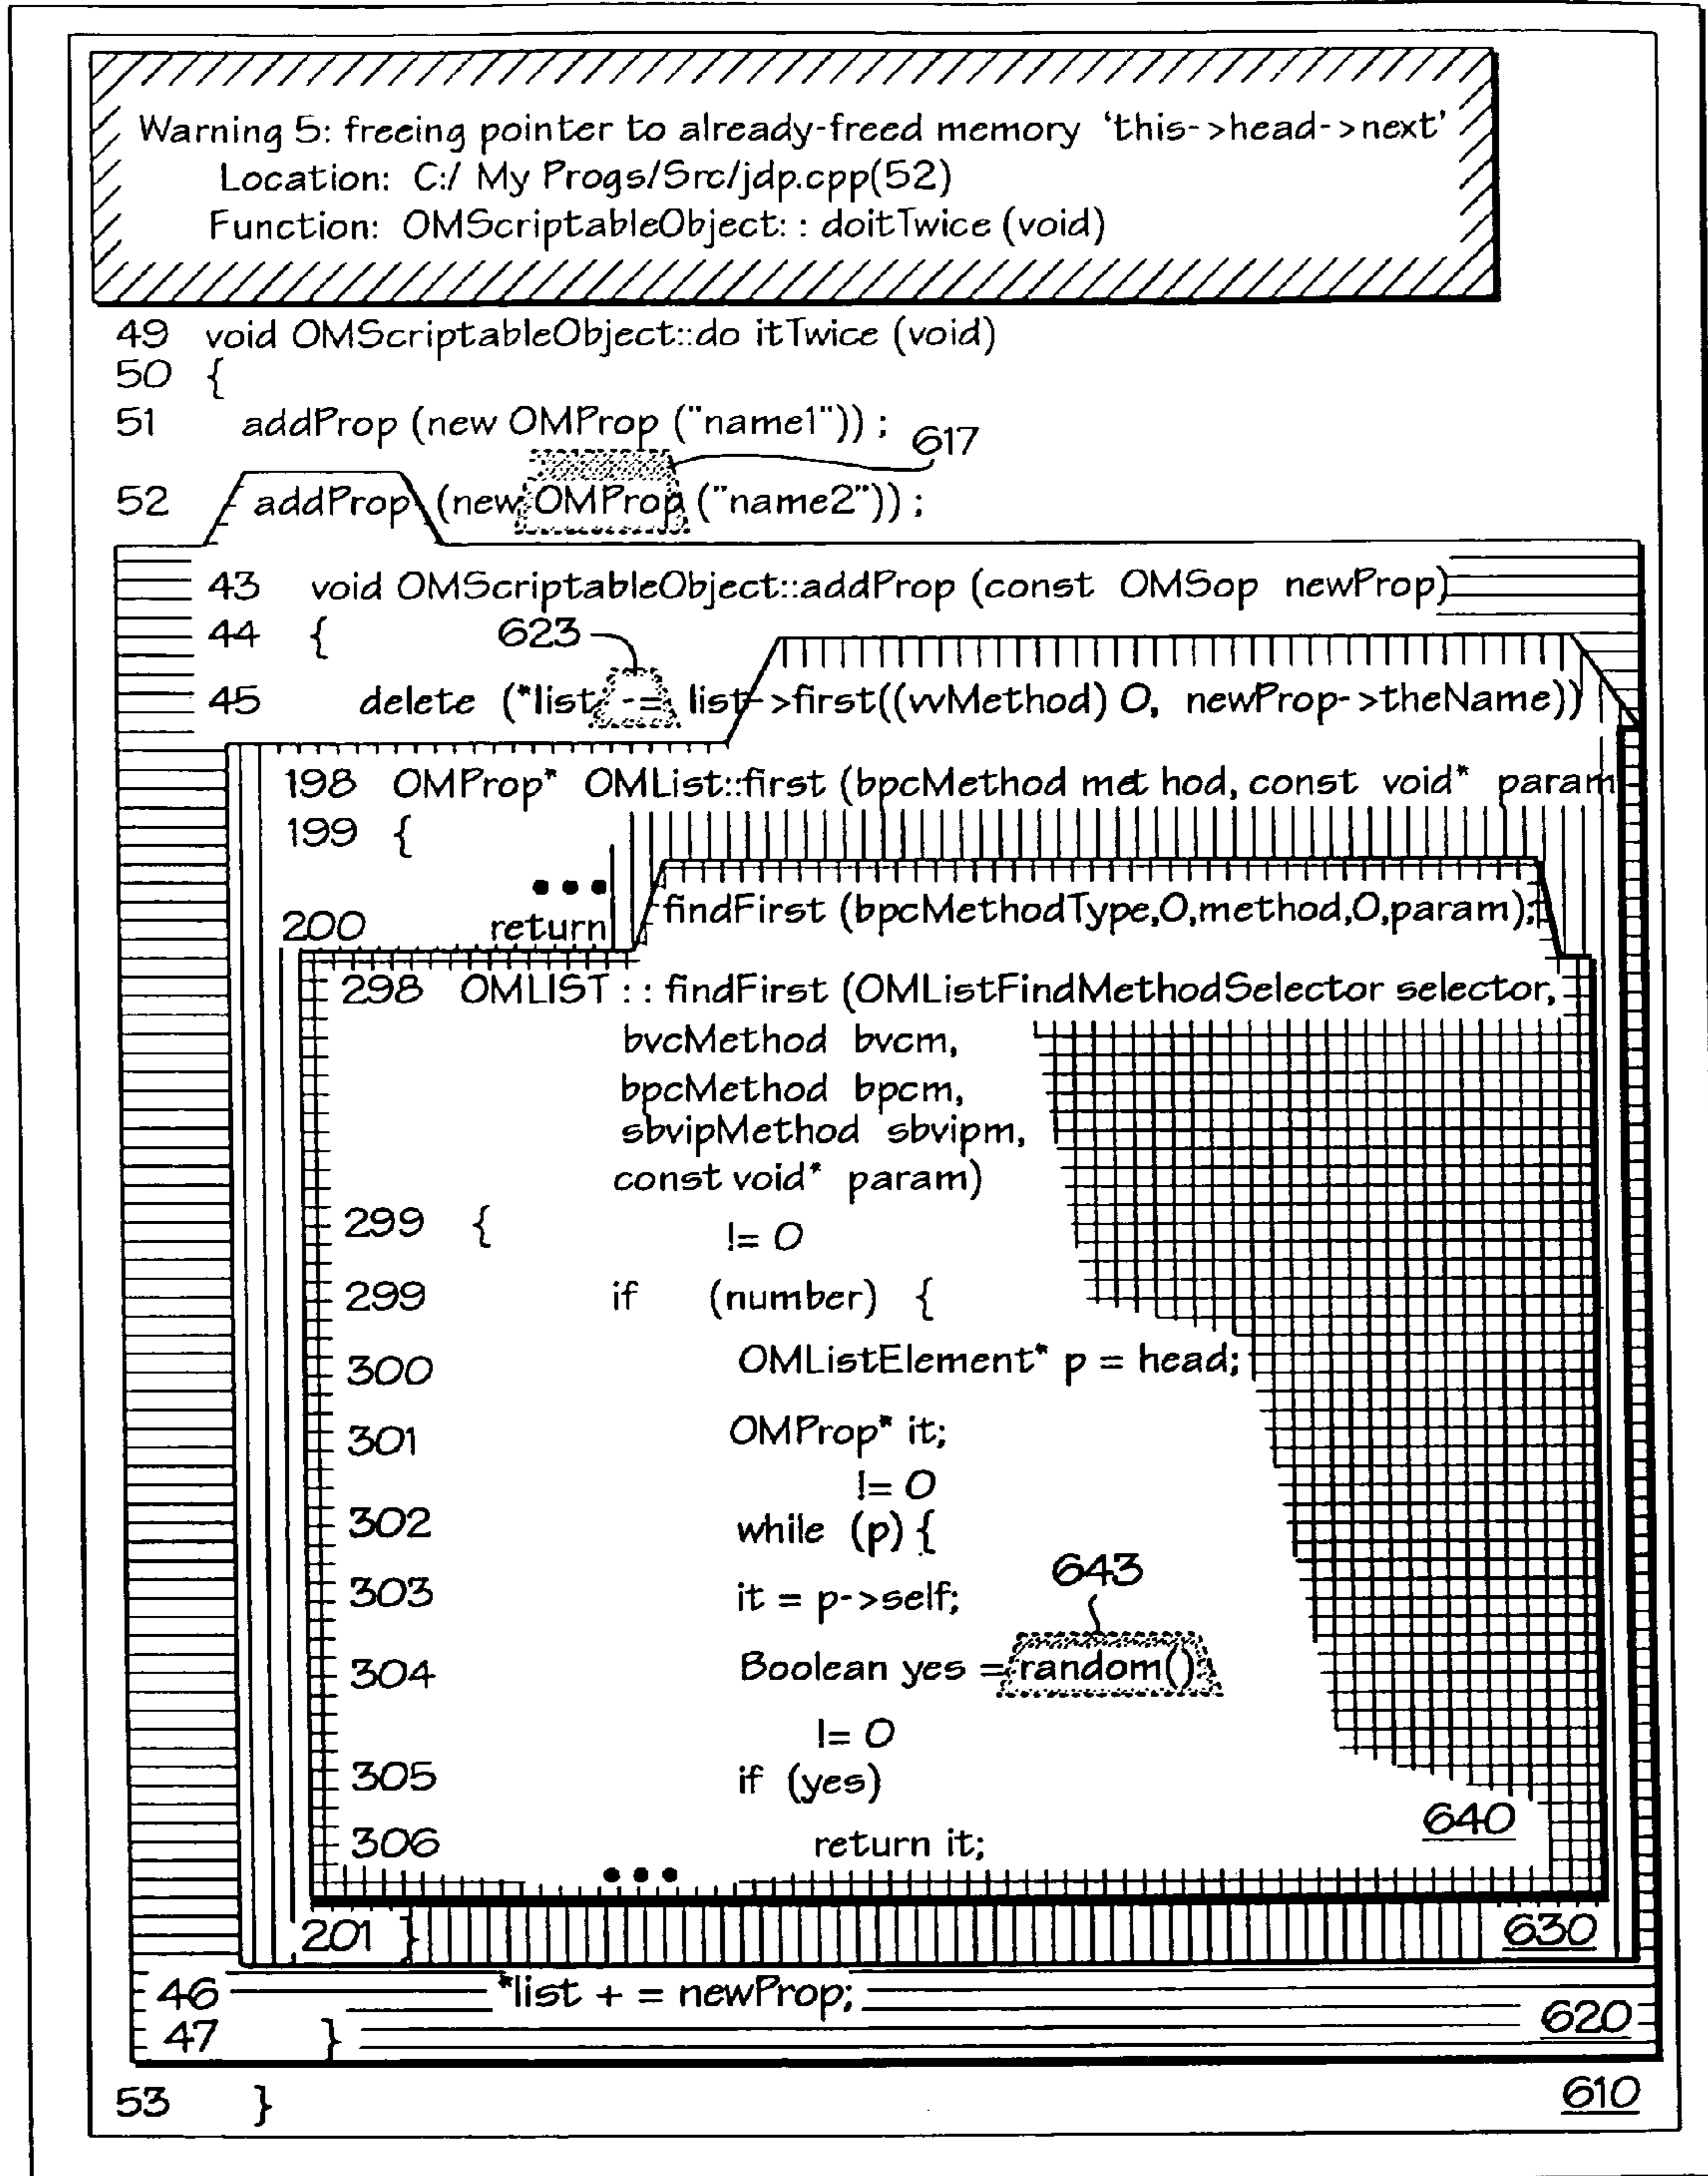 Warning 5: freeing pointer to already-freed memory 'this->head->next'
Location: C:/ My Progs/Src/jdp.cpp(52)
Function: OMScriptableObject: : doitTwice (void)
49 void OMScriptableObject::do itTwice (void)
50 {
51 addProp (new OMProp ("name1")) ;
617
52 addProp (new OMProp ("name2")) ;
43 void OMScriptableObject::addProp (const OMSop newProp)
44 { 623
45 delete (*list -= list->first((vvMethod) 0, newProp->theName))
198 OMProp* OMList::first (bpcMethod met hod, const void* param
199 {
•••
200 return findFirst (bpcMethodType,0,method,0,param);
298 OMLIST : : findFirst (OMListFindMethodSelector selector,
bvcMethod bvcm,
bpcMethod bpcm,
sbvipMethod sbvipm,
const void* param)
299 {
!= 0
299 if (number) {
300 OMListElement* p = head;
301 OMProp* it;
!= 0
302 while (p) {
643
303 it = p->self;
304 Boolean yes = random();
!= 0
305 if (yes)
640
306 return it;
•••
201 } 630
46 *list + = newProp;
620
47 }
53 } 610